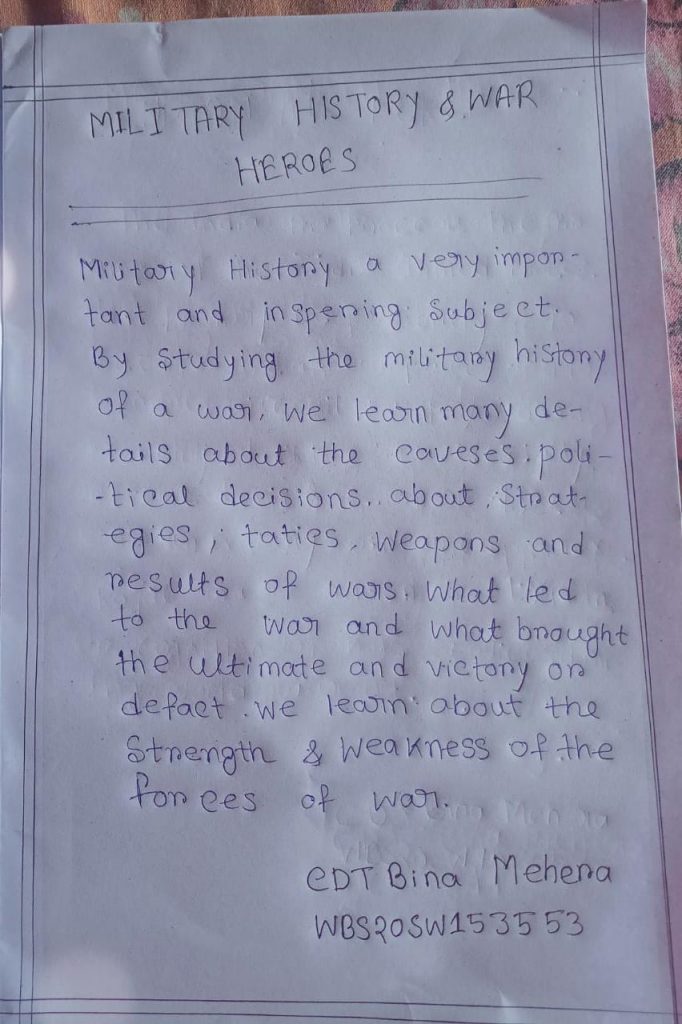 MILITARY HISTORY & WAR
HEROES
Military History a very impor-
tant and inspening Subject.
By Studying the military history
of a war, we learn many de-
tails about the caveses: poli-
-tical decisions, about, Strat-
egies, taties, weapons and
results of wars. What led
to the war and what brought
the ultimate and victory or
defact. we learn about the
Strength & Weakness of the
forces of war.
CDT Bina Mehera
WBS20SW153553